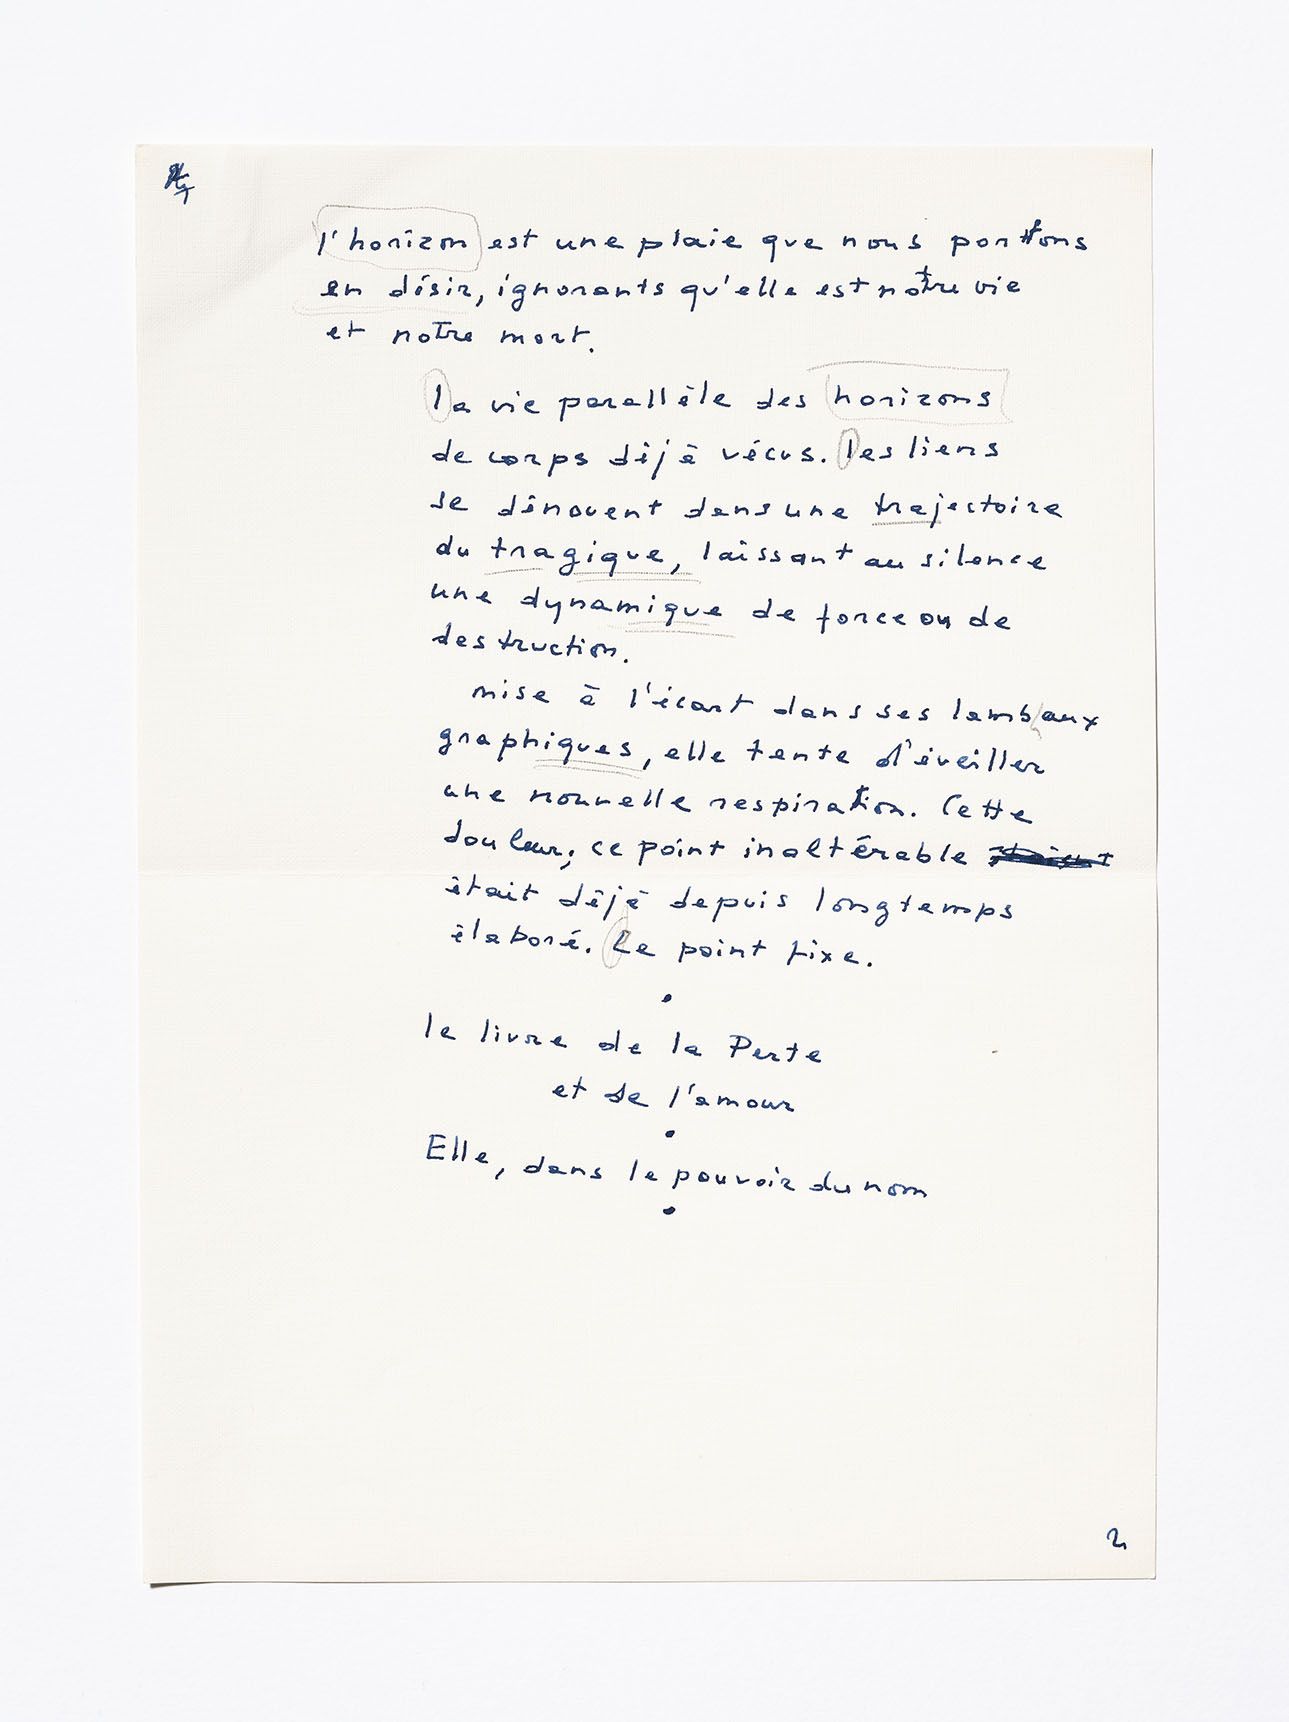 l'horizon est une plaie que nous portons
en désir, ignorants qu'elle est notre vie
et notre mort.
la vie parallèle des horizons
de corps déjà vécus. les liens
se dénouent dans une trajectoire
du tragique, laissant au silence
une dynamique de force ou de
destruction.
mise à l'écart dans ses lambaux
graphiques, elle tente d'éveiller
une nouvelle respiration. Cette
douleur, ce point inaltérable
était déjà depuis longtemps
élaboré. Le point fixe.
•
le livre de la Perte
et de l'amour
•
Elle, dans le pouvoir du nom
•
2